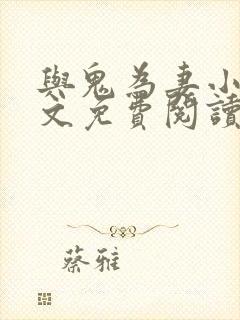 與鬼為妻小
文免費閱讀
蔡雅